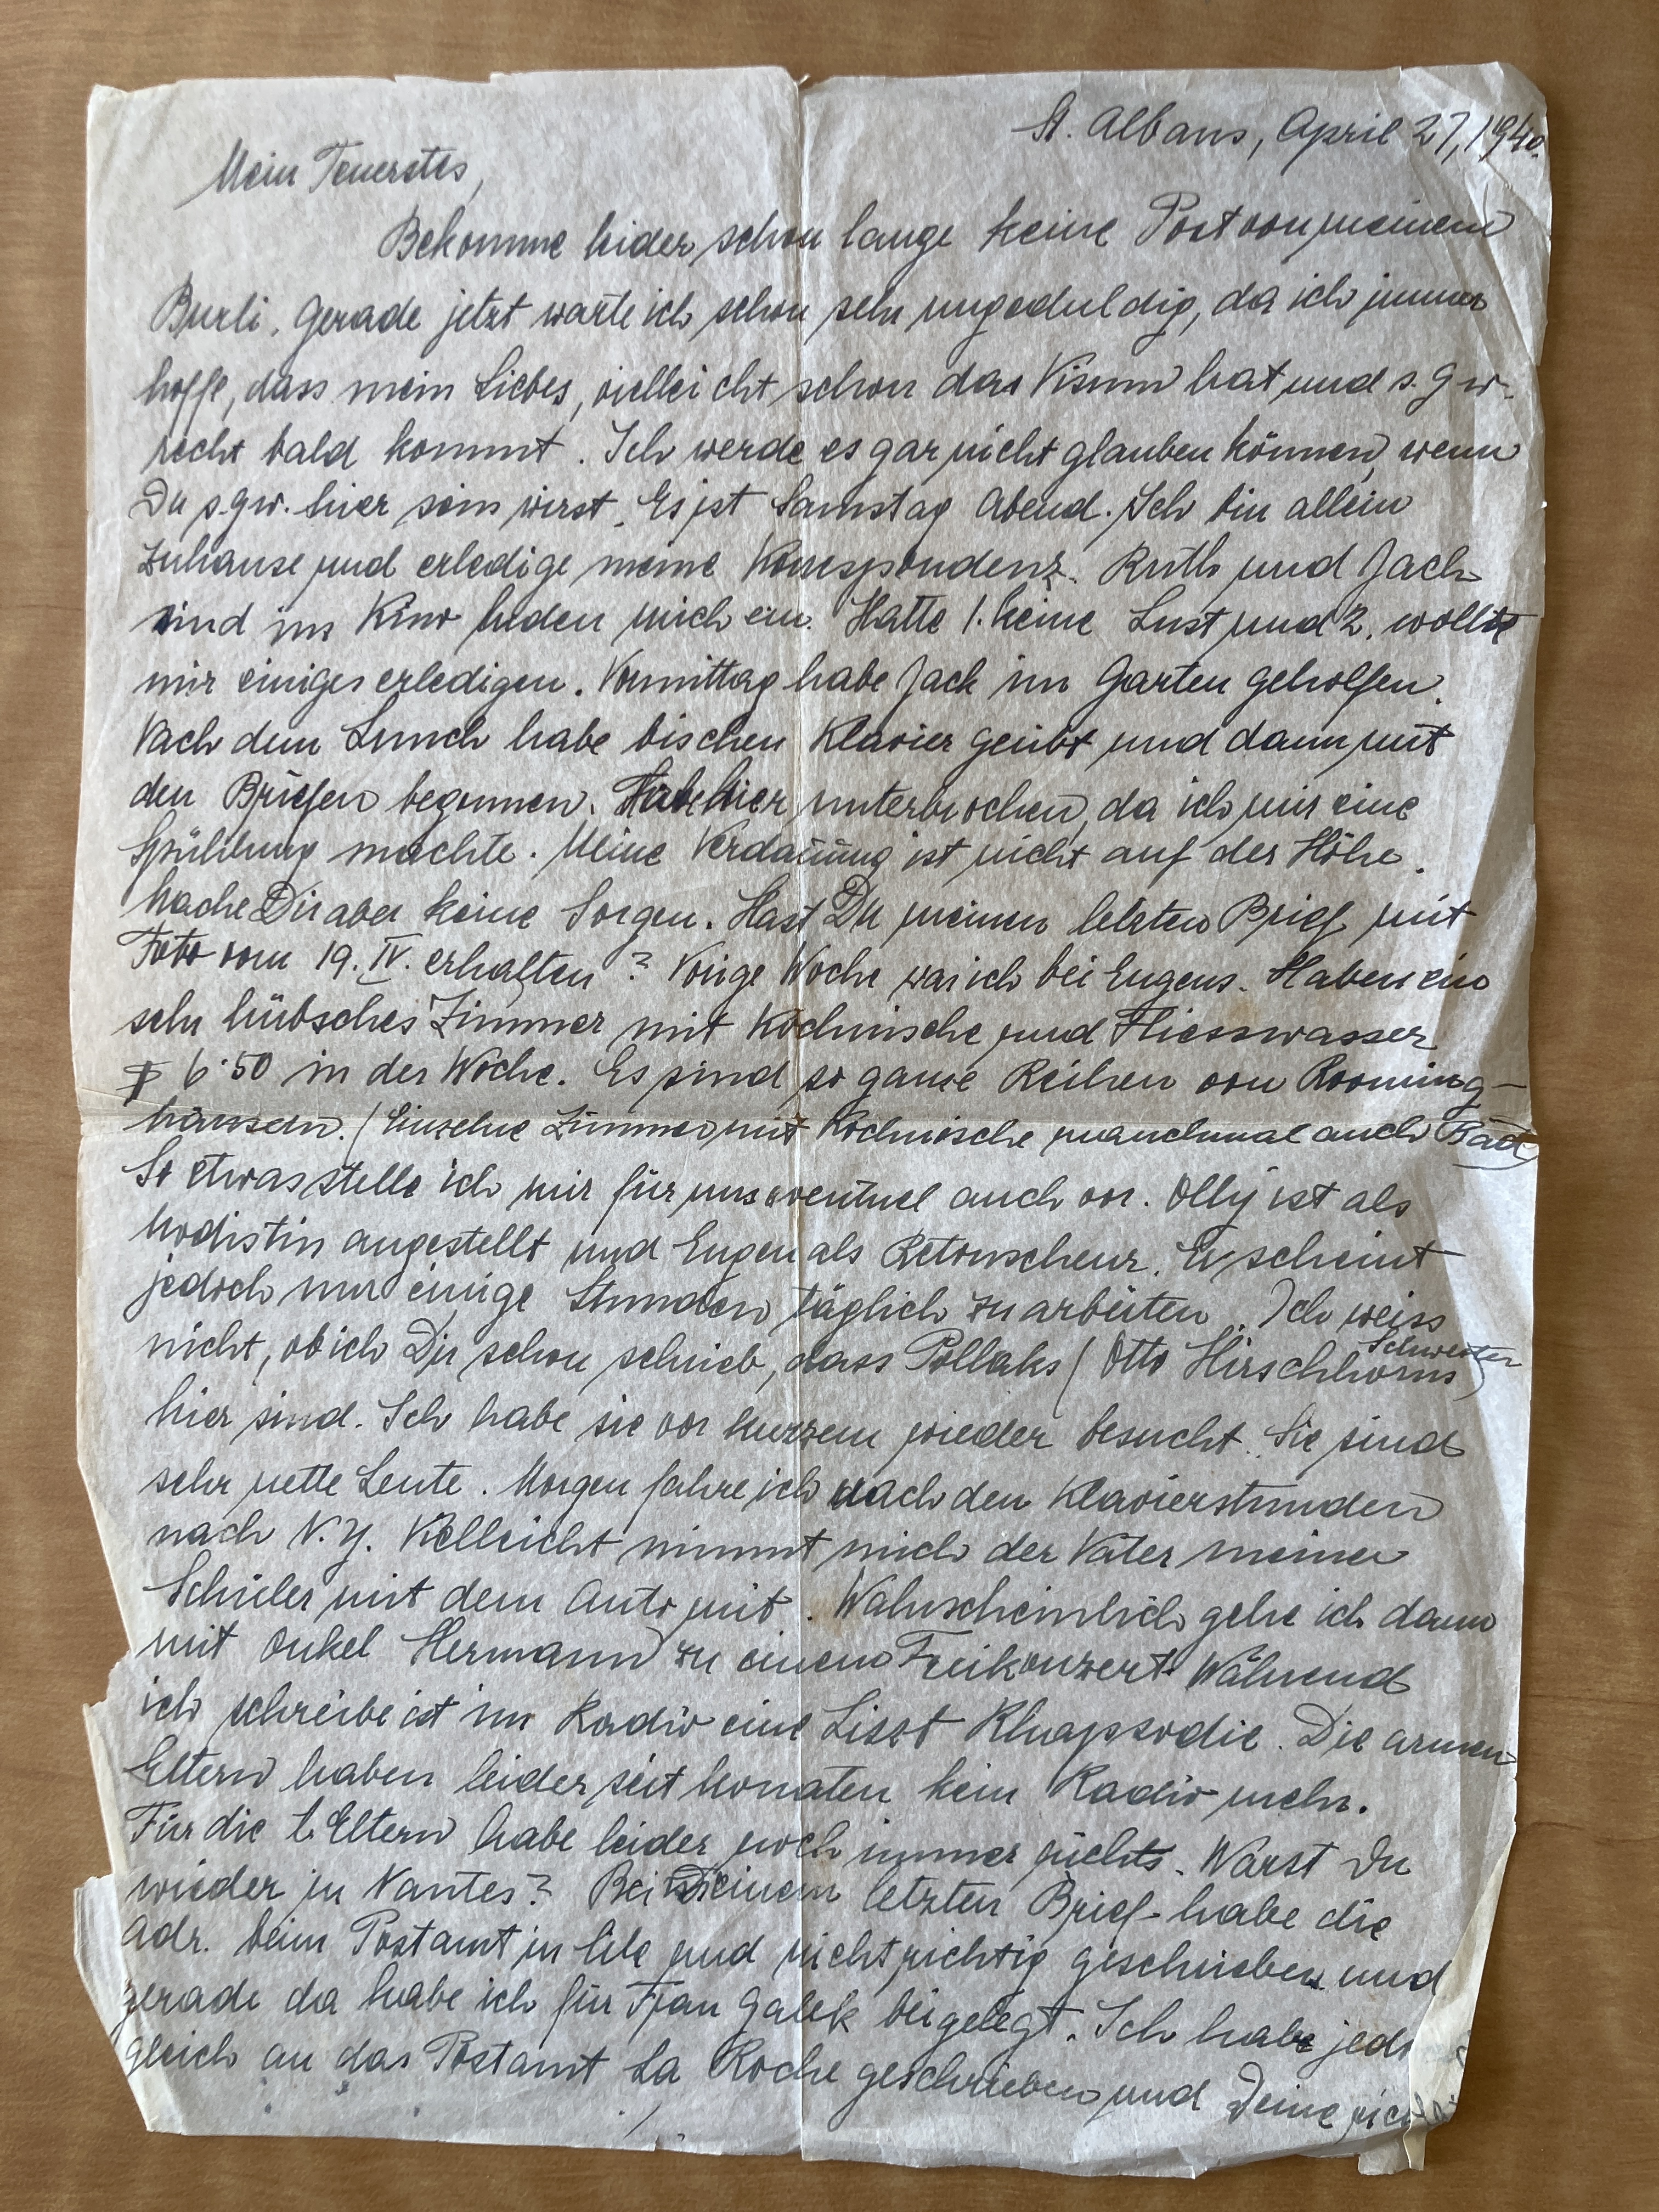 St. Albans, April 27, 1940.
Mein Teuerstes,
Bekomme leider schon lange keine Post von meinem
Burli. Gerade jetzt warte ich schon sehr ungeduldig, da ich immer
hoffe, dass mein Liebes, vielleicht schon das Visum hat und s. g. w.
recht bald kommt. Ich werde es gar nicht glauben können, wenn
Du s. gw. hier sein wirst. Es ist Samstag Abend. Ich bin allein
zuhause und erledige meine Korrespondenz. Ruth und Jack
sind im Kino luden mich ein. Hatte 1. keine Lust und 2. wollte
mir einiges erledigen. Vormittag habe Jack im Garten geholfen.
Nach dem Lunch habe bischen Klavier geübt und dann mit
den Briefen begonnen. Habe hier unterbrochen, da ich mir eine
Spühlung machte. Meine Verdauung ist nicht auf der Höhe.
Mache Dir aber keine Sorgen. Hast Du meinen letzten Brief mit
Foto vom 19. IV. erhalten? Vorige Woche war ich bei Eugens. Haben ein
sehr hübsches Zimmer mit Kochnische und Fliesswasser
$ 6·50 in der Woche. Es sind so ganze Reihen von Rooming-
häusern. (Einzelne Zimmer mit Kochnische manchmal auch Bad)
So etwas stelle ich mir für uns eventuel auch vor. Olly ist als
Modistin angestellt und Eugen als Retouscheur. Er scheint
jedoch nur einige Stunden täglich zu arbeiten. Ich weiss
nicht, ob ich Dir schon schrieb, dass Pollaks (Otto Hirschhorns Schwester)
hier sind. Ich habe sie vor kurzem wieder besucht. Sie sind
sehr nette Leute. Morgen fahre ich nach den Klavierstunden
nach N. Y. Vielleicht nimmt mich der Vater meiner
Schüler mit dem Auto mit. Wahrscheinlich gehe ich dann
mit Onkel Hermann zu einem Freikonzert. Während
ich schreibe ist im Radio eine Liszt Rhapsodie. Die armen
Eltern haben leider seit Monaten kein Radio mehr.
Für die l. Eltern habe leider noch immer nichts. Warst Du
wieder in Nantes? Bei Deinem letzten Brief habe die
Adr. beim Postamt in Eile und nicht richtig geschrieben und
gerade da habe ich für Frau Galek beigelegt. Ich habe
gleich an das Postamt La Roche geschrieben und Deine